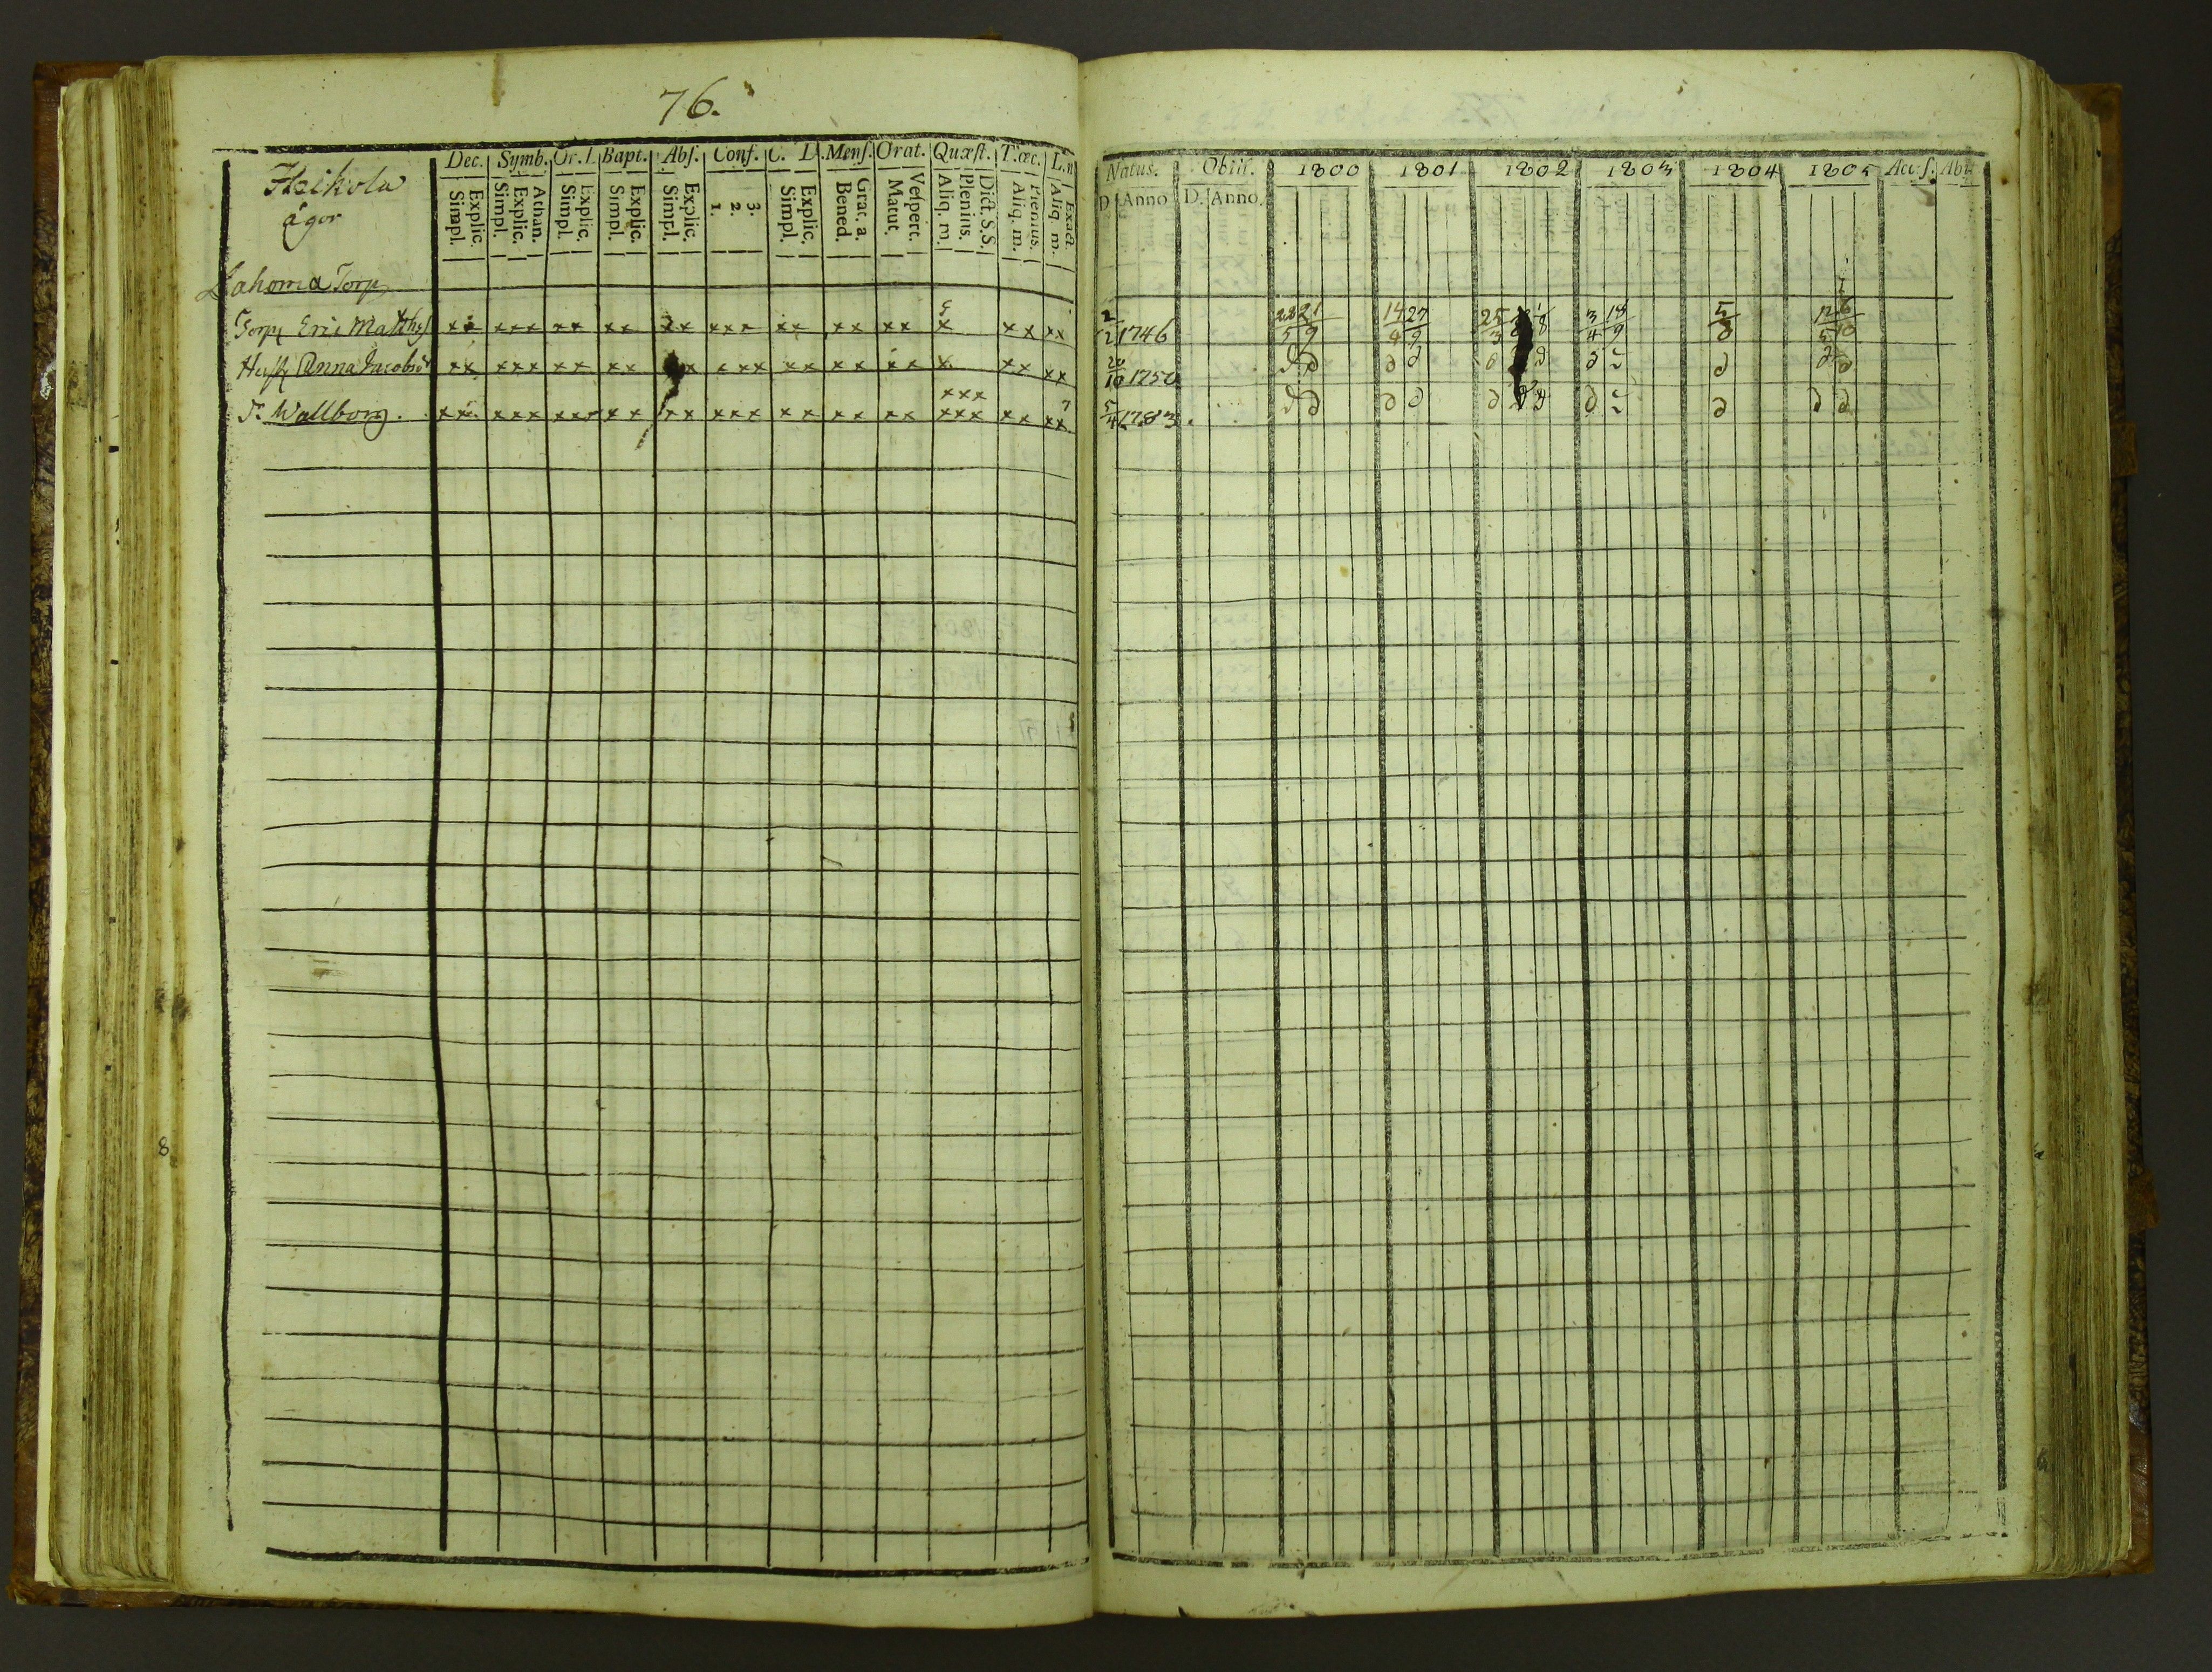 76.
Heikola
ägor
Dec. Symb. Or. D. Bapt. Abſ. Conf. C. D. Menſ. Orat. Quæſt. T. œc. L.n
Explic. Simpl. Athan. Explic. Simpl. Explic. Simpl. Explic. Simpl. Explic. Simpl. 3. 2. 1. Explic. Simpl. Grat. a. Bened. Veſpert. Matut. Dict. S.S. Plenius. Aliq. m. Plenius. Aliq. m. Exact. Aliq. m.
Natus. Obiit. 1800 1801 1802 1803 1804 1805 Acceſ. Abit
D. Anno D. Anno.
Lahoma Torp
Torp Eric Matthſ xx xxx xx xx xx xxx xx xx xx x xx xx 2/2 1746 22/5 21/9 14/4 27/9 25/3 3/4 18/9 5/8 12/5 6/10
Huſtr Anna Jacobsdr xx xxx xx xx xxx xx xx xx x xx xx 20/10 1750
Dr Wallborg. xx xxx xxx xx xx xxx xx xx xx xxx xxx xx xx 7 5/4 1783.
8